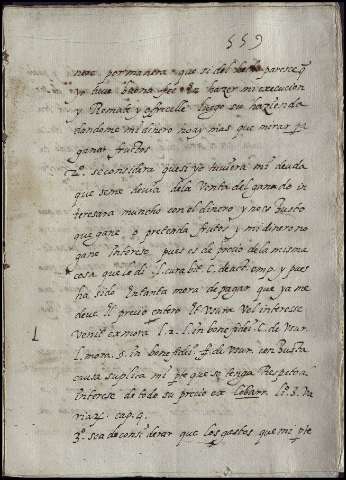 559
nere por manera que si del hecho paresce q̃
yo tuve buena fee en hazer mi execucion
y Remate y ofrecelle luego su hazienda
dandome mi dinero no ay mas que mirar pa
ganar fructos
2.º se considera que si yo tuviera mi deuda
que se me devia de la venta del ganado in
teresara muncho con el dinero y no es justo
que gane o pretenda frutos y mi dinero no
gane Interese pues es de precio de la misma
cosa que le di L. curabit C. de act. emp. y pues
ha sido tanta mora de pagar que ya me
deve el precio entero et usure vel interesse
venit ex mora l. 2. in bonefidei C. de usur.
l. mora. § in bonefidei ff. de usur. con justa
causa suplica mi pte que se tenga Respecto al
Interese de todo su precio ex Cobarr. li.º 3. Va
riar. cap. 4.
3.º sea de considerar que los gastos que mi pte